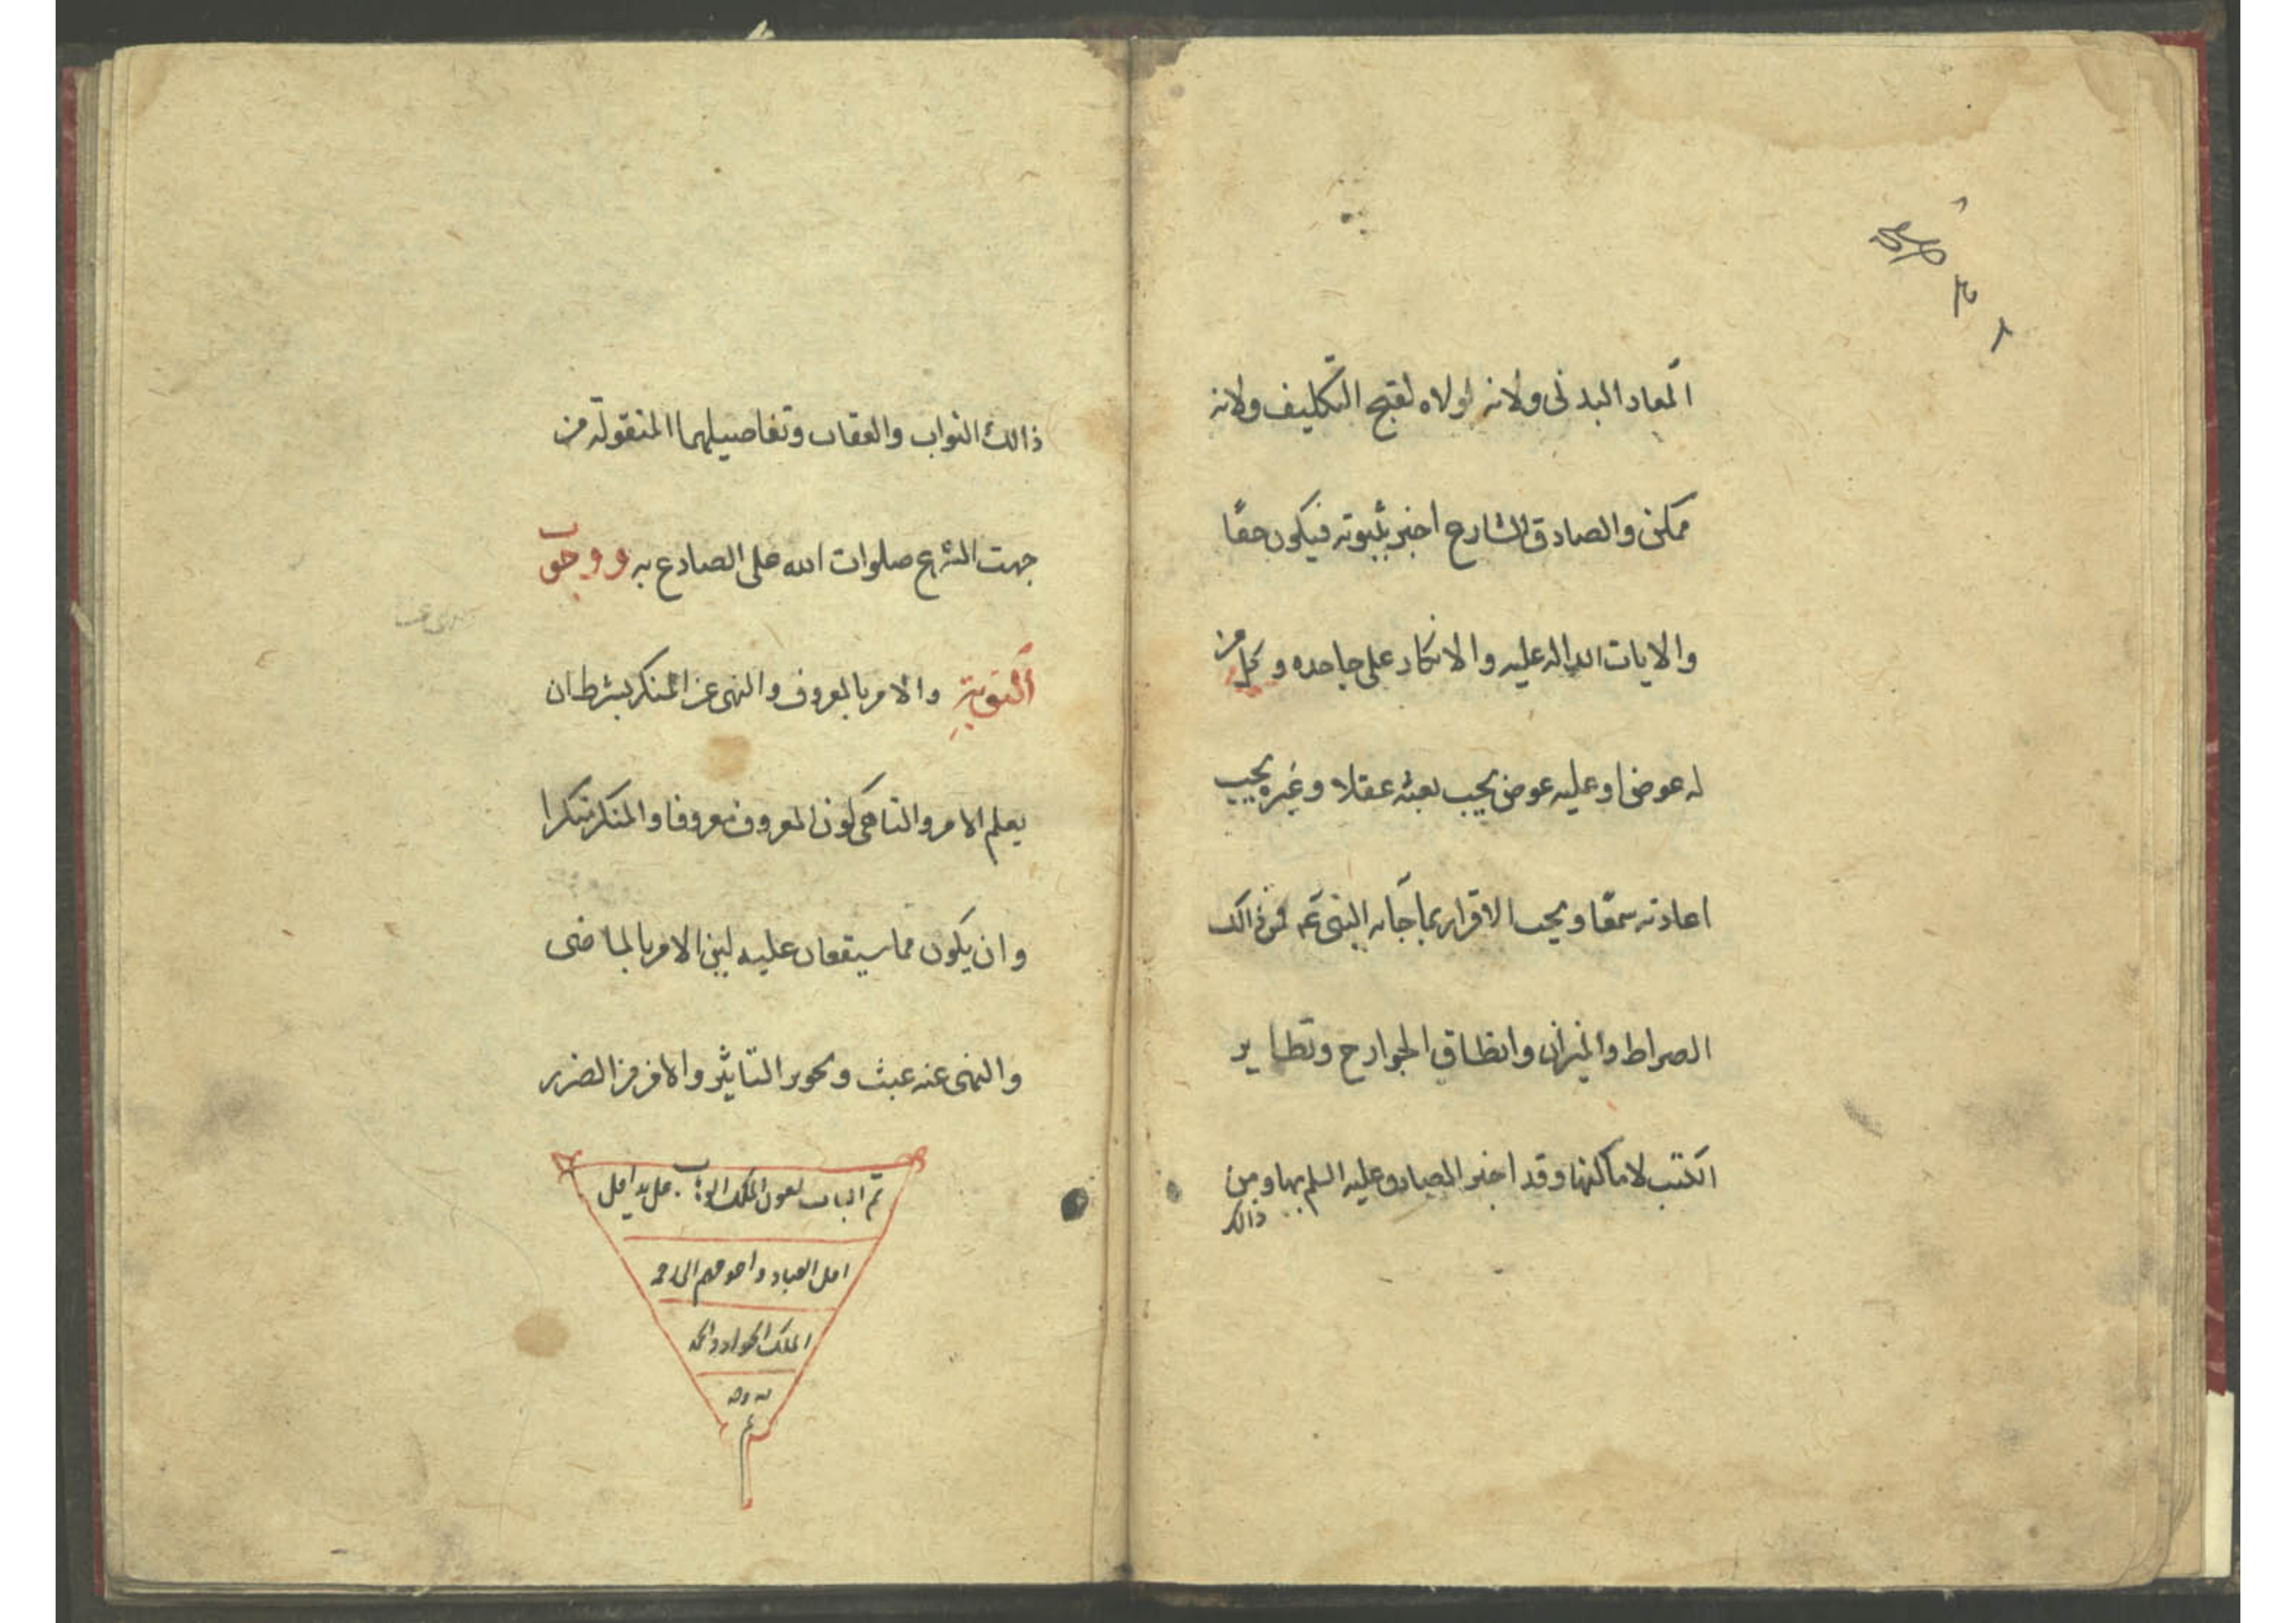 المعاد البدنى ولانه لولاه لقبح التكليف ولانه
ممكن والصادق الشارح اخبر بثبوته فيكون حقا
والايات الداله عليه والانكار على جاحده وكل من
له عوض او عليه عوض يجب بعثه عقلا وغيره يجب
اعادته سمعا ويجب الاقرار بما جآبه النبى عم فمن ذالك
الصراط والميزان وانطاق الجوارح وتطاير
الكتب لامكانها وقد اخبر الصادق عليه السلم بها ومن
ذالك
ذالك الثواب والعقاب وتفاصيلهما المنقولة من
جهت الشرع صلوات الله على الصادع به ووجوب
التوبة والامر بالمعروف والنهى عن المنكر بشرط ان
يعلم الامر والناهى كون المعروف معروفا والمنكر منكرا
وان يكون مما سيقعان عليه لين الامر بالماضى
والنهى عنه عبث وتجويز التاثير والامن من الضرر
تم الباب بعون الملك الوهاب على يد اقل
اقل العباد واحوجهم الى
الملك الجواد